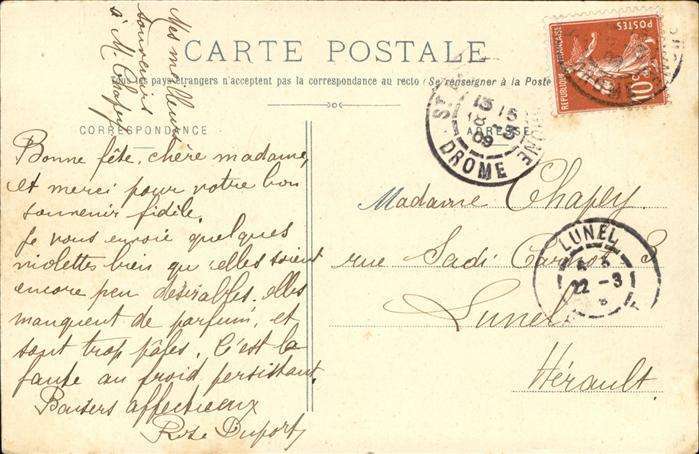 Mes meilleurs
souvenirs
à M. Chapey
CARTE POSTALE
Tous les pays étrangers n'acceptent pas la correspondance au recto (Se renseigner à la Poste
CORRESPONDANCE
ADRESSE
Bonne fête, chère madame,
et merci pour votre bon
souvenir fidèle.
Je vous envoie quelques
violettes bien qu'elles soient
encore peu désirables. elles
manquent de parfum, et
sont trop pâles. C'est la
faute au froid persistant.
Baisers affectueux
Rose Duport
Madame Chapey
rue Sadi Carnot 3
Lunel
Hérault
POSTES
REPUBLIQUE FRANÇAISE
10c
ST
13 15
18 -3
09
DROME
LUNEL
22 -3